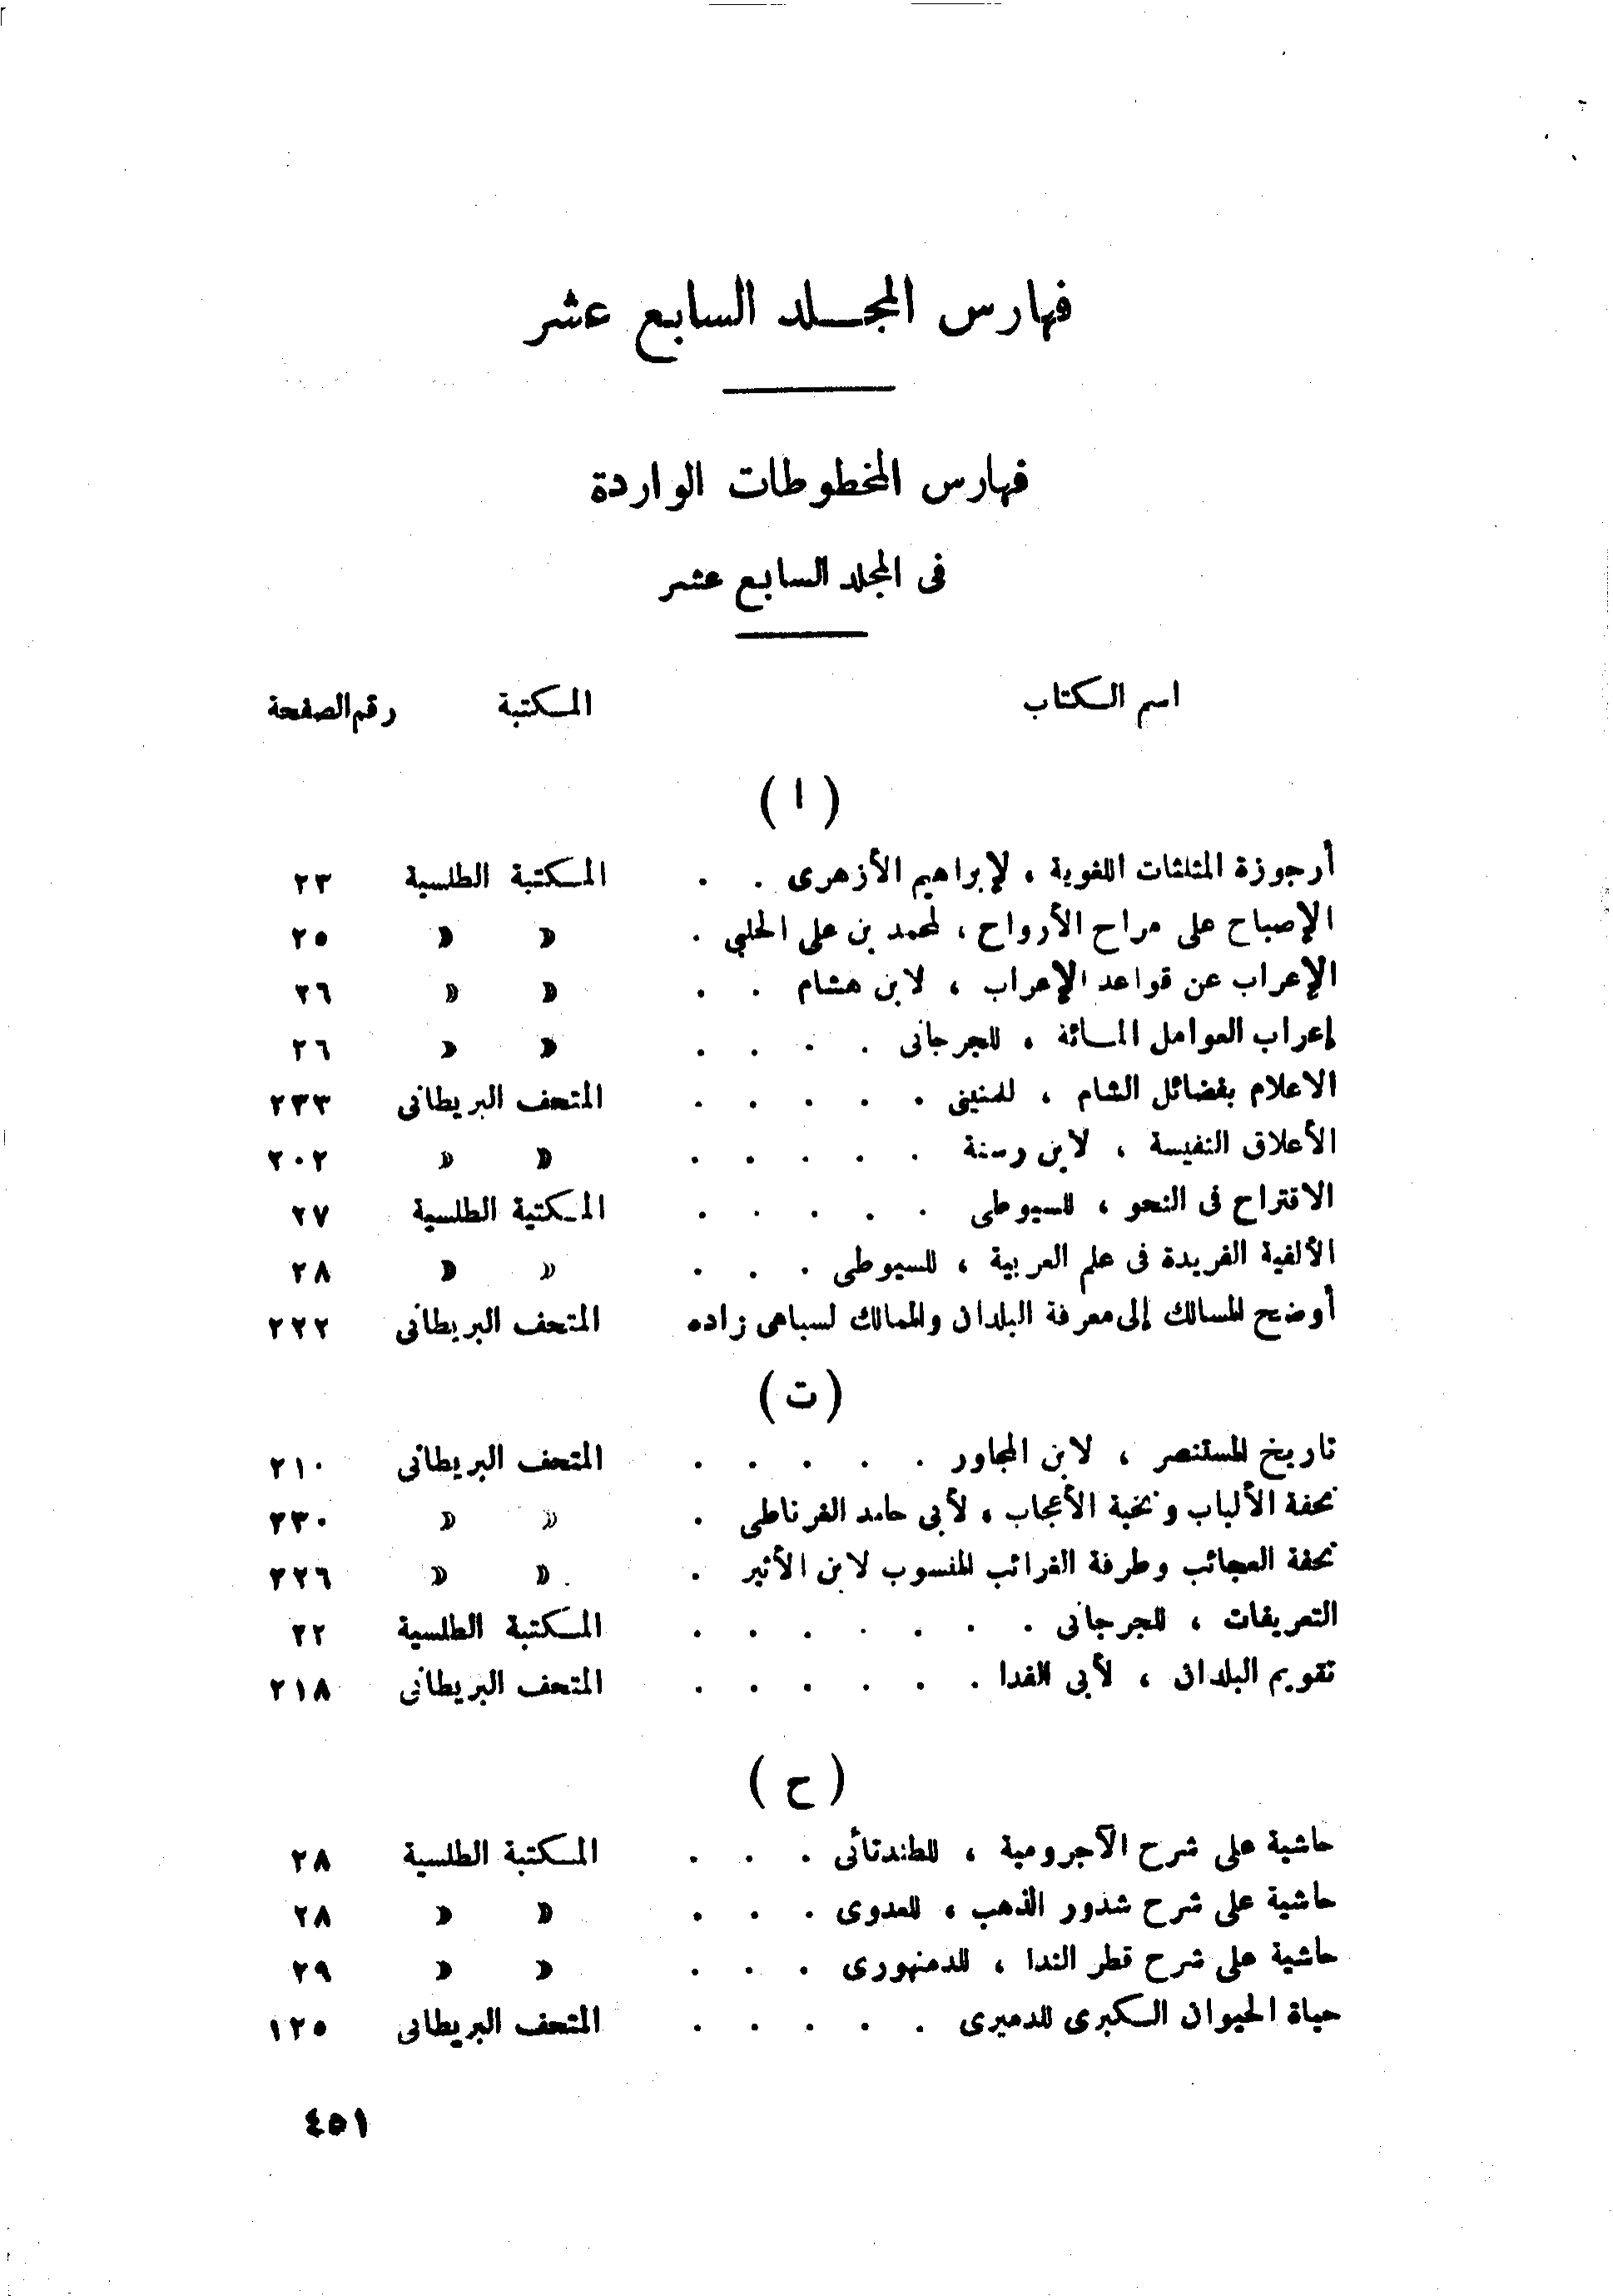 فهارس المجلد السابع عشر
فهارس المخطوطات الواردة
فى المجلد السابع عشر
اسم الكتاب المكتبة رقم الصفحة
( ا )
أرجوزة المثلثات اللغوية ، لإبراهيم الأزهرى . . المكتبة الطلسية ٢٣
الإصباح على مراح الأرواح ، لمحمد بن على الحلبي . » » ٢٥
الإعراب عن قواعد الإعراب ، لابن هشام . . » » ٢٦
إعراب العوامل المائة ، للجرجانى . . . . » » ٢٦
الاعلام بفضائل الشام ، للمنينى . . . . . المتحف البريطانى ٢٣٣
الأعلاق النفيسة ، لابن رستة . . . . . » » ٢٠٢
الاقتراح فى النحو ، للسيوطى . . . . . المكتبة الطلسية ٢٧
الألفية الفريدة فى علم العربية ، للسيوطى . . . » » ٢٨
أوضح المسالك إلى معرفة البلدان والممالك لسباهى زاده المتحف البريطانى ٢٢٢
( ت )
تاريخ المستنصر ، لابن المجاور . . . . . المتحف البريطانى ٢١٠
تحفة الألباب ونخبة الأعجاب ، لأبى حامد الغرناطى . » » ٢٣٠
تحفة العجائب وطرفة الغرائب المنسوب لابن الأثير . » » ٢٢٦
التعريفات ، للجرجانى . . . . . . . المكتبة الطلسية ٢٢
تقويم البلدان ، لأبى الفدا . . . . . . المتحف البريطانى ٢١٨
( ح )
حاشية على شرح الآجرومية ، للطندتائى . . . المكتبة الطلسية ٢٨
حاشية على شرح شذور الذهب ، للعدوى . . . » » ٢٨
حاشية على شرح قطر الندا ، للدمنهورى . . . » » ٢٩
حياة الحيوان الكبرى للدميرى . . . . . المتحف البريطانى ١٢٥
٤٥١